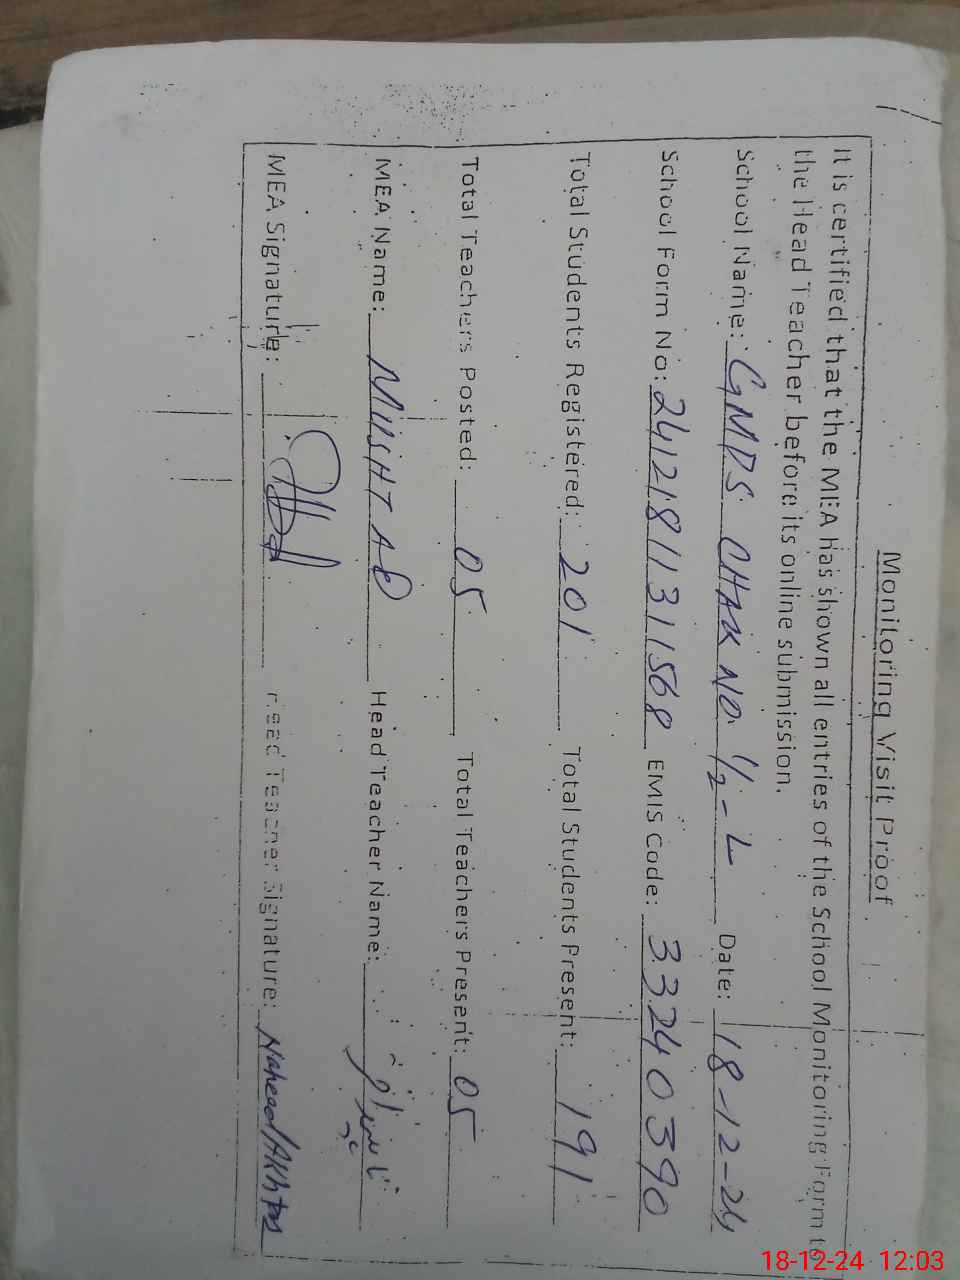 Monitoring Visit Proof
It is certified that the MEA has shown all entries of the School Monitoring Form to
the Head Teacher before its online submission.
School Name: GMPS CHAK NO. 1/2-L Date: 18-12-24
School Form No: 24121811311568 EMIS Code: 33240390
Total Students Registered: 201 Total Students Present: 191
Total Teachers Posted: 05 Total Teachers Present: 05
MEA Name: MUSHTAQ Head Teacher Name:
MEA Signature: Head Teacher Signature: Naheed Akhtar
18-12-24 12:03